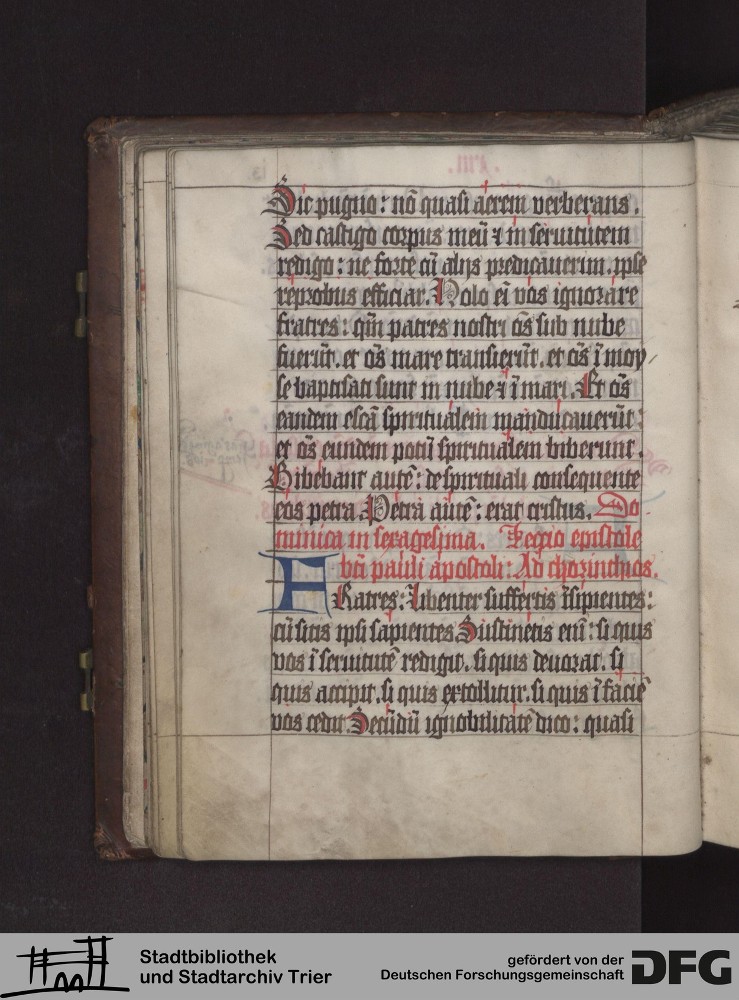 Sic pugno: nō quasi aerem verberans.
Sed castigo corpus meū ⁊ in seruitutem
redigo: ne forte cū alijs predicauerim. ipse
reprobus efficiar. Nolo ei̅ vos ignorare
fratres: qm̅ patres nostri oe̅s sub nube
fuerūt. et oe̅s mare transierūt. et oe̅s ī moy
se baptisati sunt in nube ⁊ ī mari. Et oe̅s
eandem escā spiritualem manducauerūt:
et oe̅s eundem potū spiritualem biberunt.
Bibebant autē: de spirituali consequente
eos petra. Petra autē: erat cristus. Do
minica in sexagesima. Lectio epistole
bt̅i pauli apostoli: Ad chorinthios.
FRatres: Libenter suffertis īsipientes:
cū sitis ipsi sapientes Sustinetis eni̅: si quis
vos ī seruitutē redigit. si quis deuorat. si
quis accipit. si quis extollitur. si quis ī faciē
vos cedit. Secūdū ignobilitatē dico: quasi
Stadtbibliothek
und Stadtarchiv Trier
gefördert von der
Deutschen Forschungsgemeinschaft
DFG